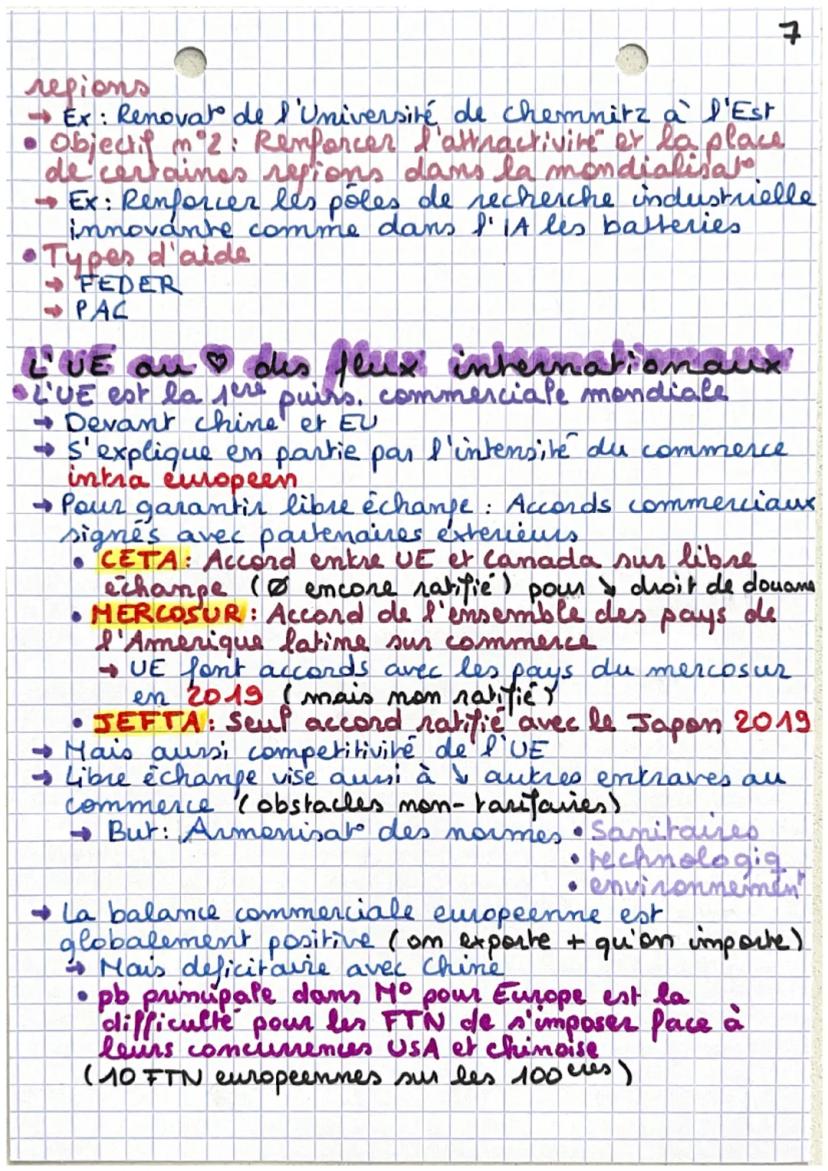 7
regions
→ Ex: Renovat° de l'Université de chemnitz à l'Est
• Objectif n°2: Renforcer l'attractivité et la place
de certaines regions dans la mondialisat°
→ Ex: Renforcer les pôles de recherche industrielle
innovante comme dans l'IA les batteries
• Types d'aide
→ FEDER
→ PAC
L'UE au ♡ des flux internationaux
• L'UE est la 1ere puiss. commerciale mondiale
→ Devant chine et EU
→ S'explique en partie par l'intensité du commerce
intra europeen
→ Pour garantir libre échange: Accords commerciaux
signés avec partenaires exterieurs
• CETA: Accord entre UE et Canada sur libre
échange (Ø encore ratifié) pour ↘ droit de douane
• MERCOSUR: Accord de l'ensemble des pays de
l'Amerique latine sur commerce
→ UE font accords avec les pays du mercosur
en 2019 (mais non ratifié)
• JEFTA: Seul accord ratifié avec le Japon 2019
→ Mais aussi competitivité de l'UE
→ Libre échange vise aussi à ↘ autres entraves au
commerce (obstacles non-tarifaires)
→ But: Armonisat° des normes • Sanitaires
• technologiq
• environnement
→ La balance commerciale europeenne est
globalement positive (on exporte + qu'on importe)
→ Mais deficitaire avec Chine
• pb principale dans M° pour Europe est la
difficulté pour les FTN de s'imposer face à
leurs concurrences USA et chinoise
(10 FTN europeennes sur les 100 eres)